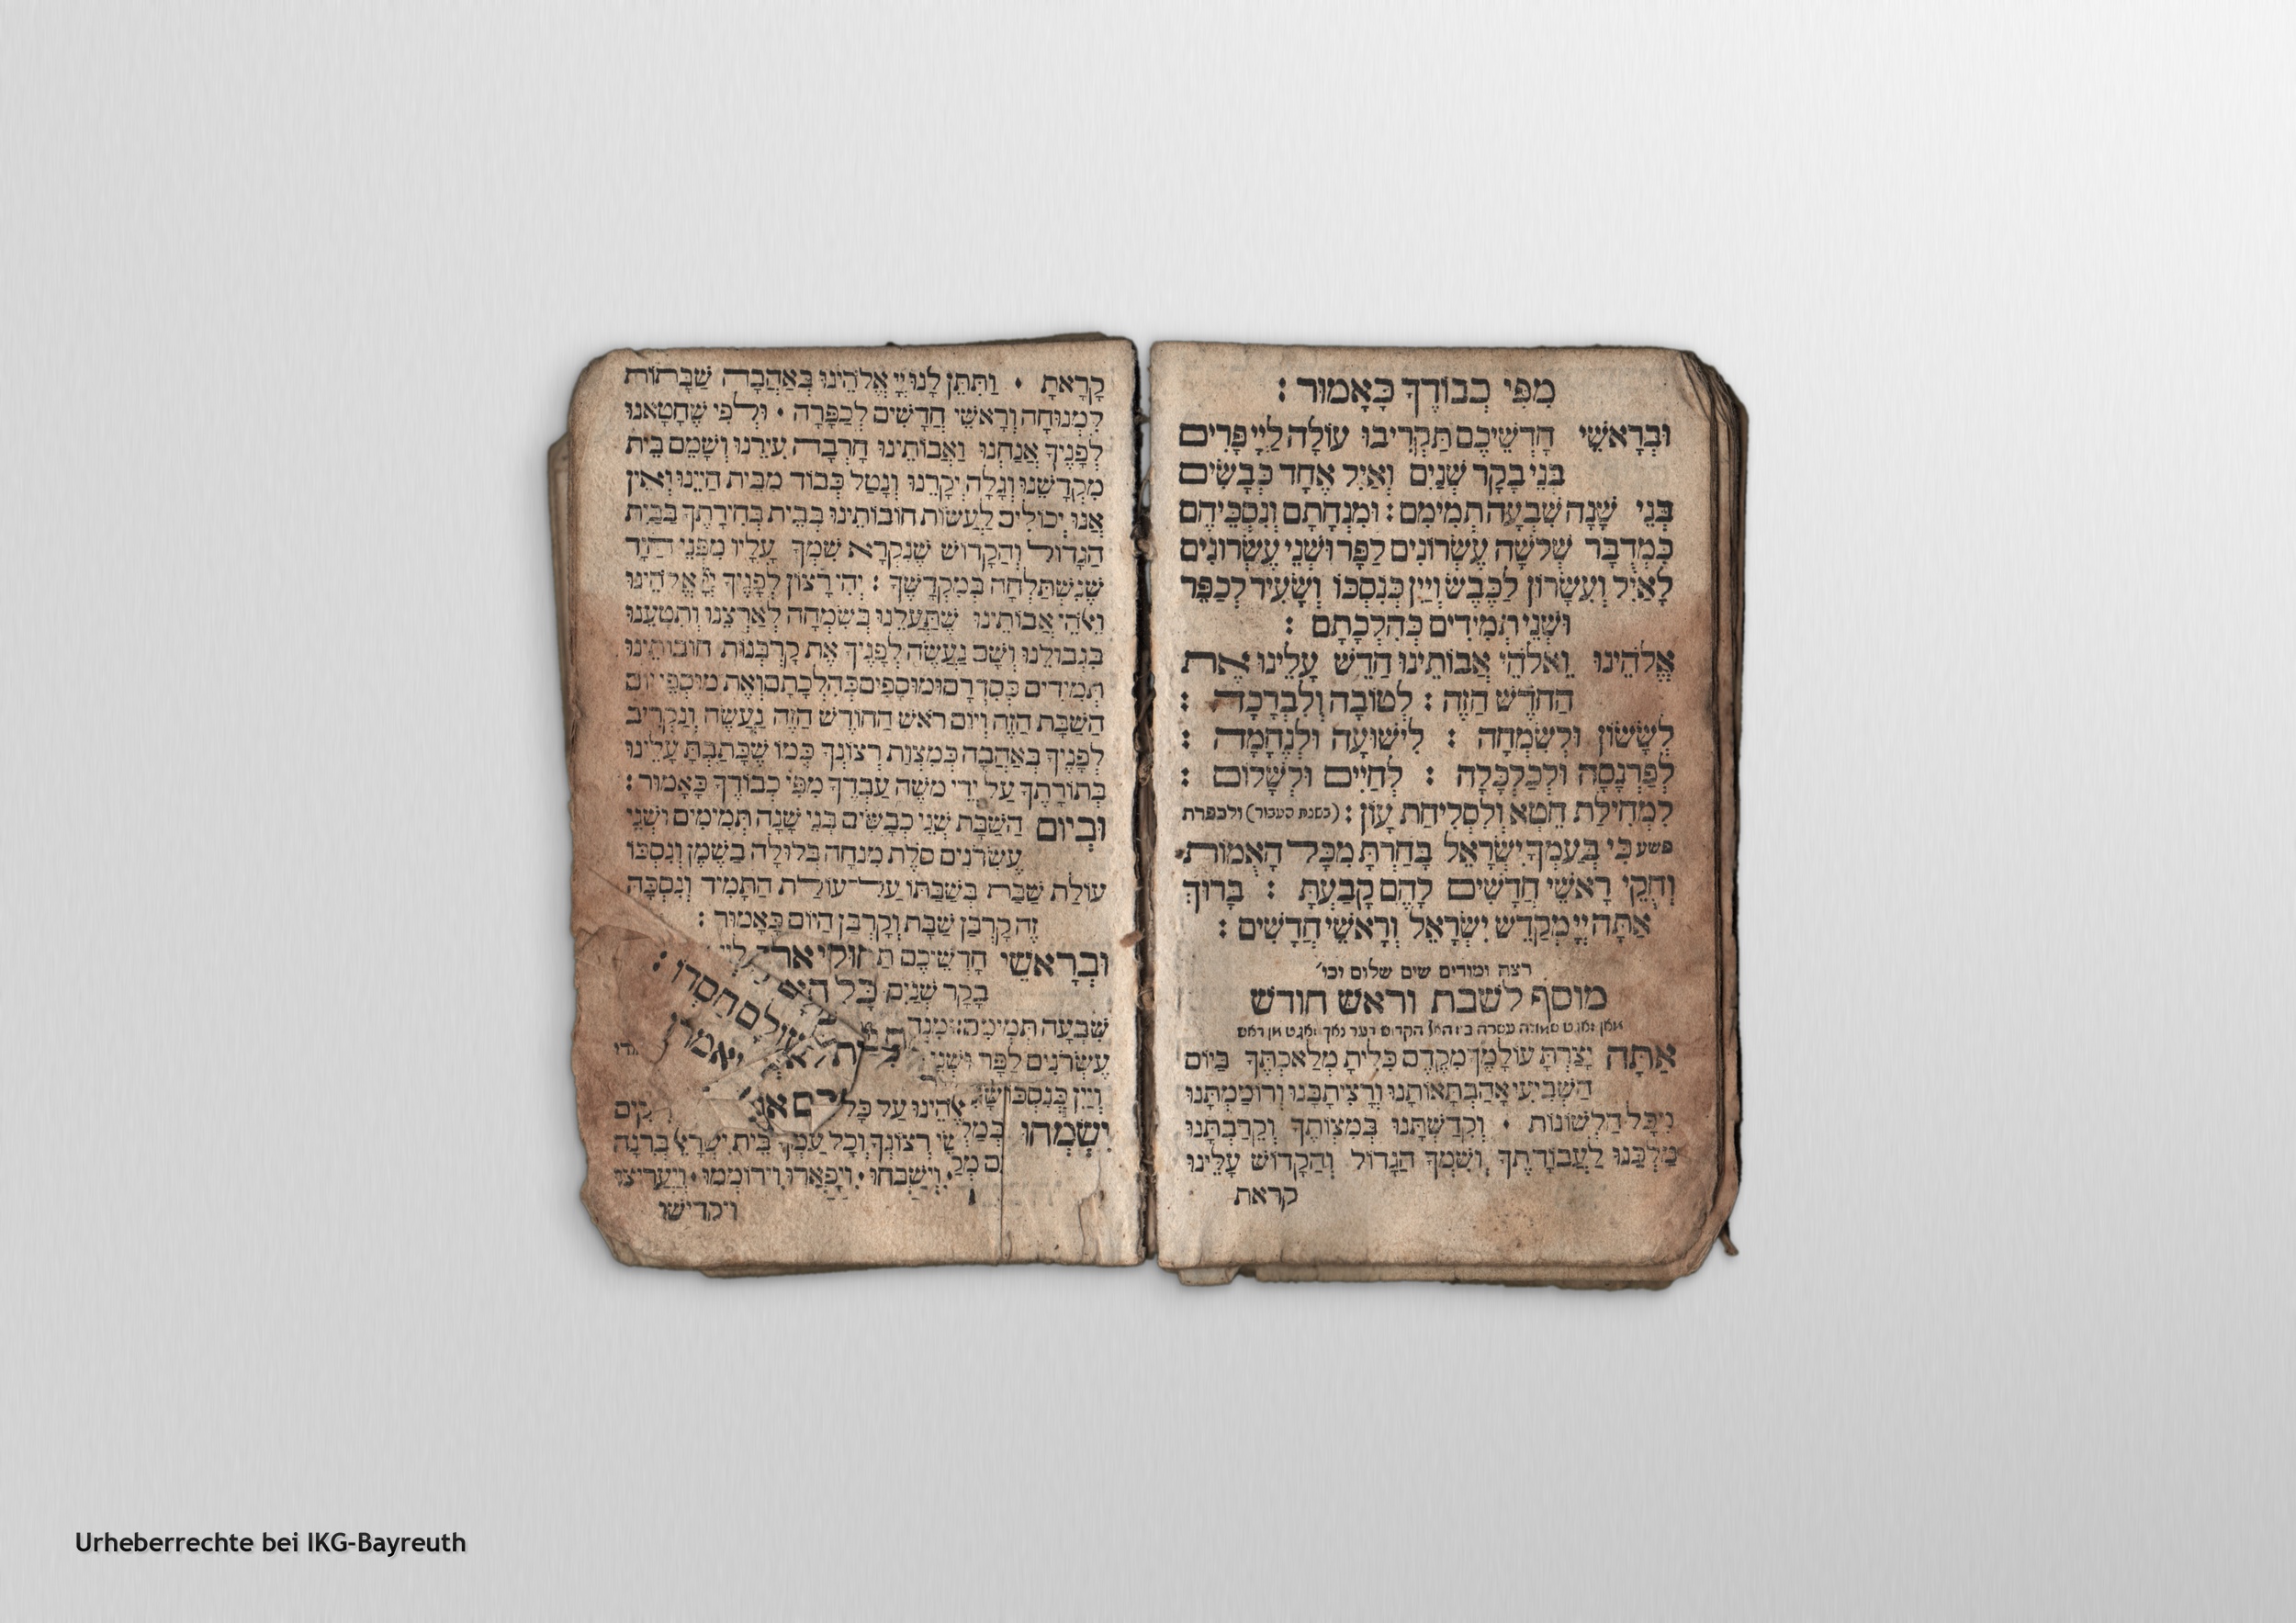 מִפִּי כְבוֹדֶךָ כָּאָמוּר :
וּבְרָאשֵׁי חָדְשֵׁיכֶם תַּקְרִיבוּ עוֹלָה לַיְיָ פָּרִים
בְּנֵי בָקָר שְׁנַיִם וְאַיִל אֶחָד כְּבָשִׂים
בְּנֵי שָׁנָה שִׁבְעָה תְמִימִם : וּמִנְחָתָם וְנִסְכֵּיהֶם
כִּמְדֻבָּר שְׁלשָׁה עֶשְׂרוֹנִים לַפָּר וּשְׁנֵי עֶשְׂרוֹנִים
לָאַיִל וְעִשָּׂרוֹן לַכֶּבֶשׂ וְיַיִן כְּנִסְכּוֹ וְשָׂעִיר לְכַפֵּר
וּשְׁנֵי תְמִידִים כְּהִלְכָתָם :
אֱלֹהֵינוּ וֵאלֹהֵי אֲבוֹתֵינוּ חַדֵּשׁ עָלֵינוּ אֶת
הַחֹדֶשׁ הַזֶּה : לְטוֹבָה וְלִבְרָכָה :
לְשָׂשׂוֹן וּלְשִׂמְחָה : לִישׁוּעָה וּלְנֶחָמָה :
לְפַרְנָסָה וּלְכַלְכָּלָה : לְחַיִּים וּלְשָׁלוֹם :
לִמְחִילַת חֵטְא וְלִסְלִיחַת עָוֹן : (בשנת העבור) ולכפרת
פשע כִּי בְעַמְּךָ יִשְׂרָאֵל בָּחַרְתָּ מִכָּל הָאֻמּוֹת
וְחֻקֵּי רָאשֵׁי חֳדָשִׁים לָהֶם קָבַעְתָּ : בָּרוּךְ
אַתָּה יְיָ מְקַדֵּשׁ יִשְׂרָאֵל וְרָאשֵׁי חֳדָשִׁים :
רצה ומודים שים שלום וכו׳
מוסף לשבת וראש חודש
אַתָּה יָצַרְתָּ עוֹלָמְךָ מִקֶּדֶם כִּלִּיתָ מְלַאכְתֶּךָ בַּיּוֹם
הַשְּׁבִיעִי אָהַבְתָּ אוֹתָנוּ וְרָצִיתָ בָּנוּ וְרוֹמַמְתָּנוּ
מִכָּל הַלְּשׁוֹנוֹת • וְקִדַּשְׁתָּנוּ בְּמִצְוֹתֶיךָ וְקֵרַבְתָּנוּ
מַלְכֵּנוּ לַעֲבוֹדָתֶךָ וְשִׁמְךָ הַגָּדוֹל וְהַקָּדוֹשׁ עָלֵינוּ
קראת
קָרָאתָ • וַתִּתֵּן לָנוּ יְיָ אֱלֹהֵינוּ בְּאַהֲבָה שַׁבָּתוֹת
לִמְנוּחָה וְרָאשֵׁי חֳדָשִׁים לְכַפָּרָה • וּלְפִי שֶׁחָטָאנוּ
לְפָנֶיךָ אֲנַחְנוּ וַאֲבוֹתֵינוּ חָרְבָה עִירֵנוּ וְשָׁמֵם בֵּית
מִקְדָּשֵׁנוּ וְגָלָה יְקָרֵנוּ וְנֻטַּל כָּבוֹד מִבֵּית חַיֵּינוּ וְאֵין
אָנוּ יְכוֹלִים לַעֲשׂוֹת חוֹבוֹתֵינוּ בְּבֵית בְּחִירָתֶךָ בַּבַּיִת
הַגָּדוֹל וְהַקָּדוֹשׁ שֶׁנִּקְרָא שִׁמְךָ עָלָיו מִפְּנֵי הַיָּד
שֶׁנִּשְׁתַּלְּחָה בְּמִקְדָּשֶׁךָ : יְהִי רָצוֹן לְפָנֶיךָ יְיָ אֱלֹהֵינוּ
וֵאלֹהֵי אֲבוֹתֵינוּ שֶׁתַּעֲלֵנוּ בְּשִׂמְחָה לְאַרְצֵנוּ וְתִטָּעֵנוּ
בִּגְבוּלֵנוּ וְשָׁם נַעֲשֶׂה לְפָנֶיךָ אֶת קָרְבְּנוֹת חוֹבוֹתֵינוּ
תְּמִידִים כְּסִדְרָם וּמוּסָפִים כְּהִלְכָתָם וְאֶת מוּסְפֵי יוֹם
הַשַּׁבָּת הַזֶּה וְיוֹם רֹאשׁ הַחוֹדֶשׁ הַזֶּה נַעֲשֶׂה וְנַקְרִיב
לְפָנֶיךָ בְּאַהֲבָה כְּמִצְוַת רְצוֹנֶךָ כְּמוֹ שֶׁכָּתַבְתָּ עָלֵינוּ
בְּתוֹרָתֶךָ עַל יְדֵי מֹשֶׁה עַבְדֶּךָ מִפִּי כְבוֹדֶךָ כָּאָמוּר :
וּבְיוֹם הַשַּׁבָּת שְׁנֵי כְבָשִׂים בְּנֵי שָׁנָה תְּמִימִים וּשְׁנֵי
עֶשְׂרֹנִים סֹלֶת מִנְחָה בְּלוּלָה בַשֶּׁמֶן וְנִסְכּוֹ
עוֹלַת שַׁבַּת בְּשַׁבַּתּוֹ עַל עוֹלַת הַתָּמִיד וְנִסְכָּהּ
זֶה קָרְבַּן שַׁבָּת וְקָרְבַּן הַיּוֹם כָּאָמוּר :
וּבְרָאשֵׁי חָדְשֵׁיכֶם
בָקָר שְׁנַיִם
שִׁבְעָה תְּמִימִם :
עֶשְׂרֹנִים לַפָּר וּשְׁנֵי
וְיַיִן כְּנִסְכּוֹ
יִשְׂמְחוּ
רְצוֹנֶךָ וְכָל עַמְּךָ בֵּית יִשְׂרָאֵל בְּרִנָּה
וִישַׁבְּחוּ • וִיפָאֲרוּ וִירוֹמְמוּ • וְיַעֲרִיצוּ
ויקדישו
Urheberrechte bei IKG-Bayreuth